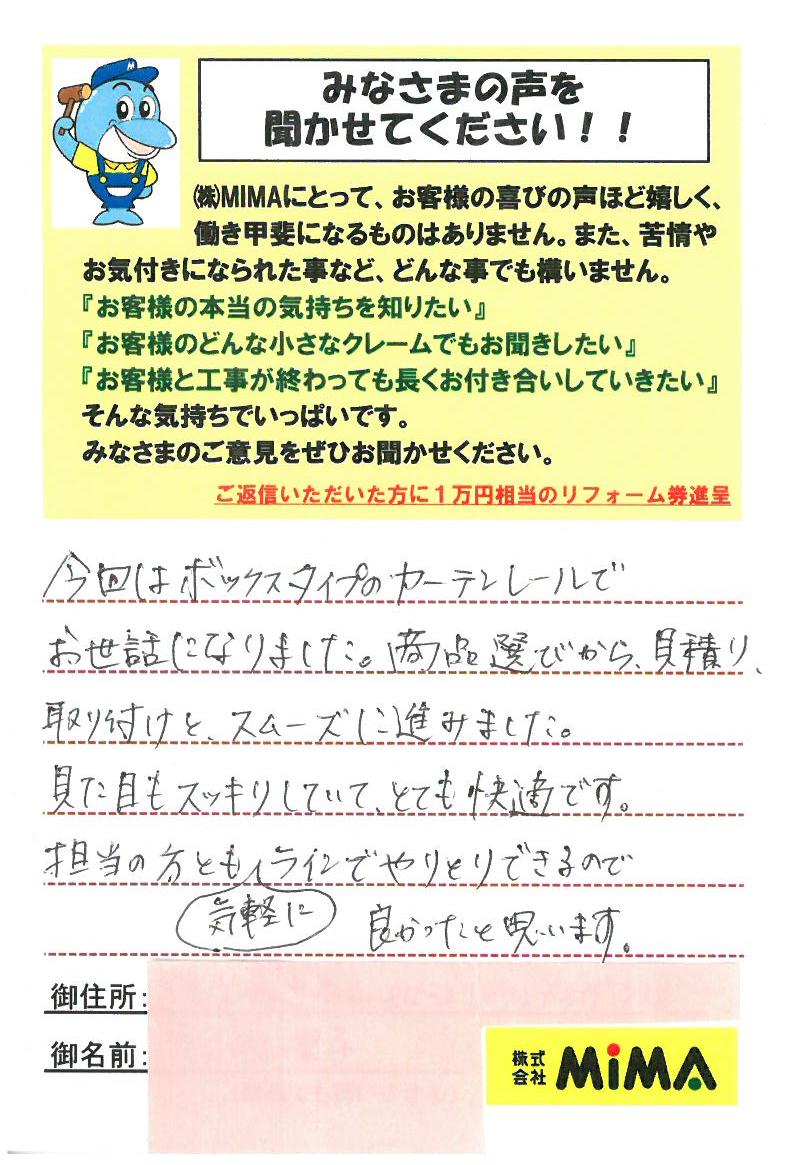 みなさまの声を
聞かせてください!!
㈱MIMAにとって、お客様の喜びの声ほど嬉しく、
働き甲斐になるものはありません。また、苦情や
お気付きになられた事など、どんな事でも構いません。
『お客様の本当の気持ちを知りたい』
『お客様のどんな小さなクレームでもお聞きしたい』
『お客様と工事が終わっても長くお付き合いしていきたい』
そんな気持ちでいっぱいです。
みなさまのご意見をぜひお聞かせください。
ご返信いただいた方に1万円相当のリフォーム券進呈
今回はボックスタイプのカーテンレールで
お世話になりました。商品選びから、見積り、
取り付けと、スムーズに進みました。
見た目もスッキリしていて、とても快適です。
担当の方ともラインでやりとりできるので
気軽に 良かったと思います。
御住所:
御名前:
株式会社 MIMA